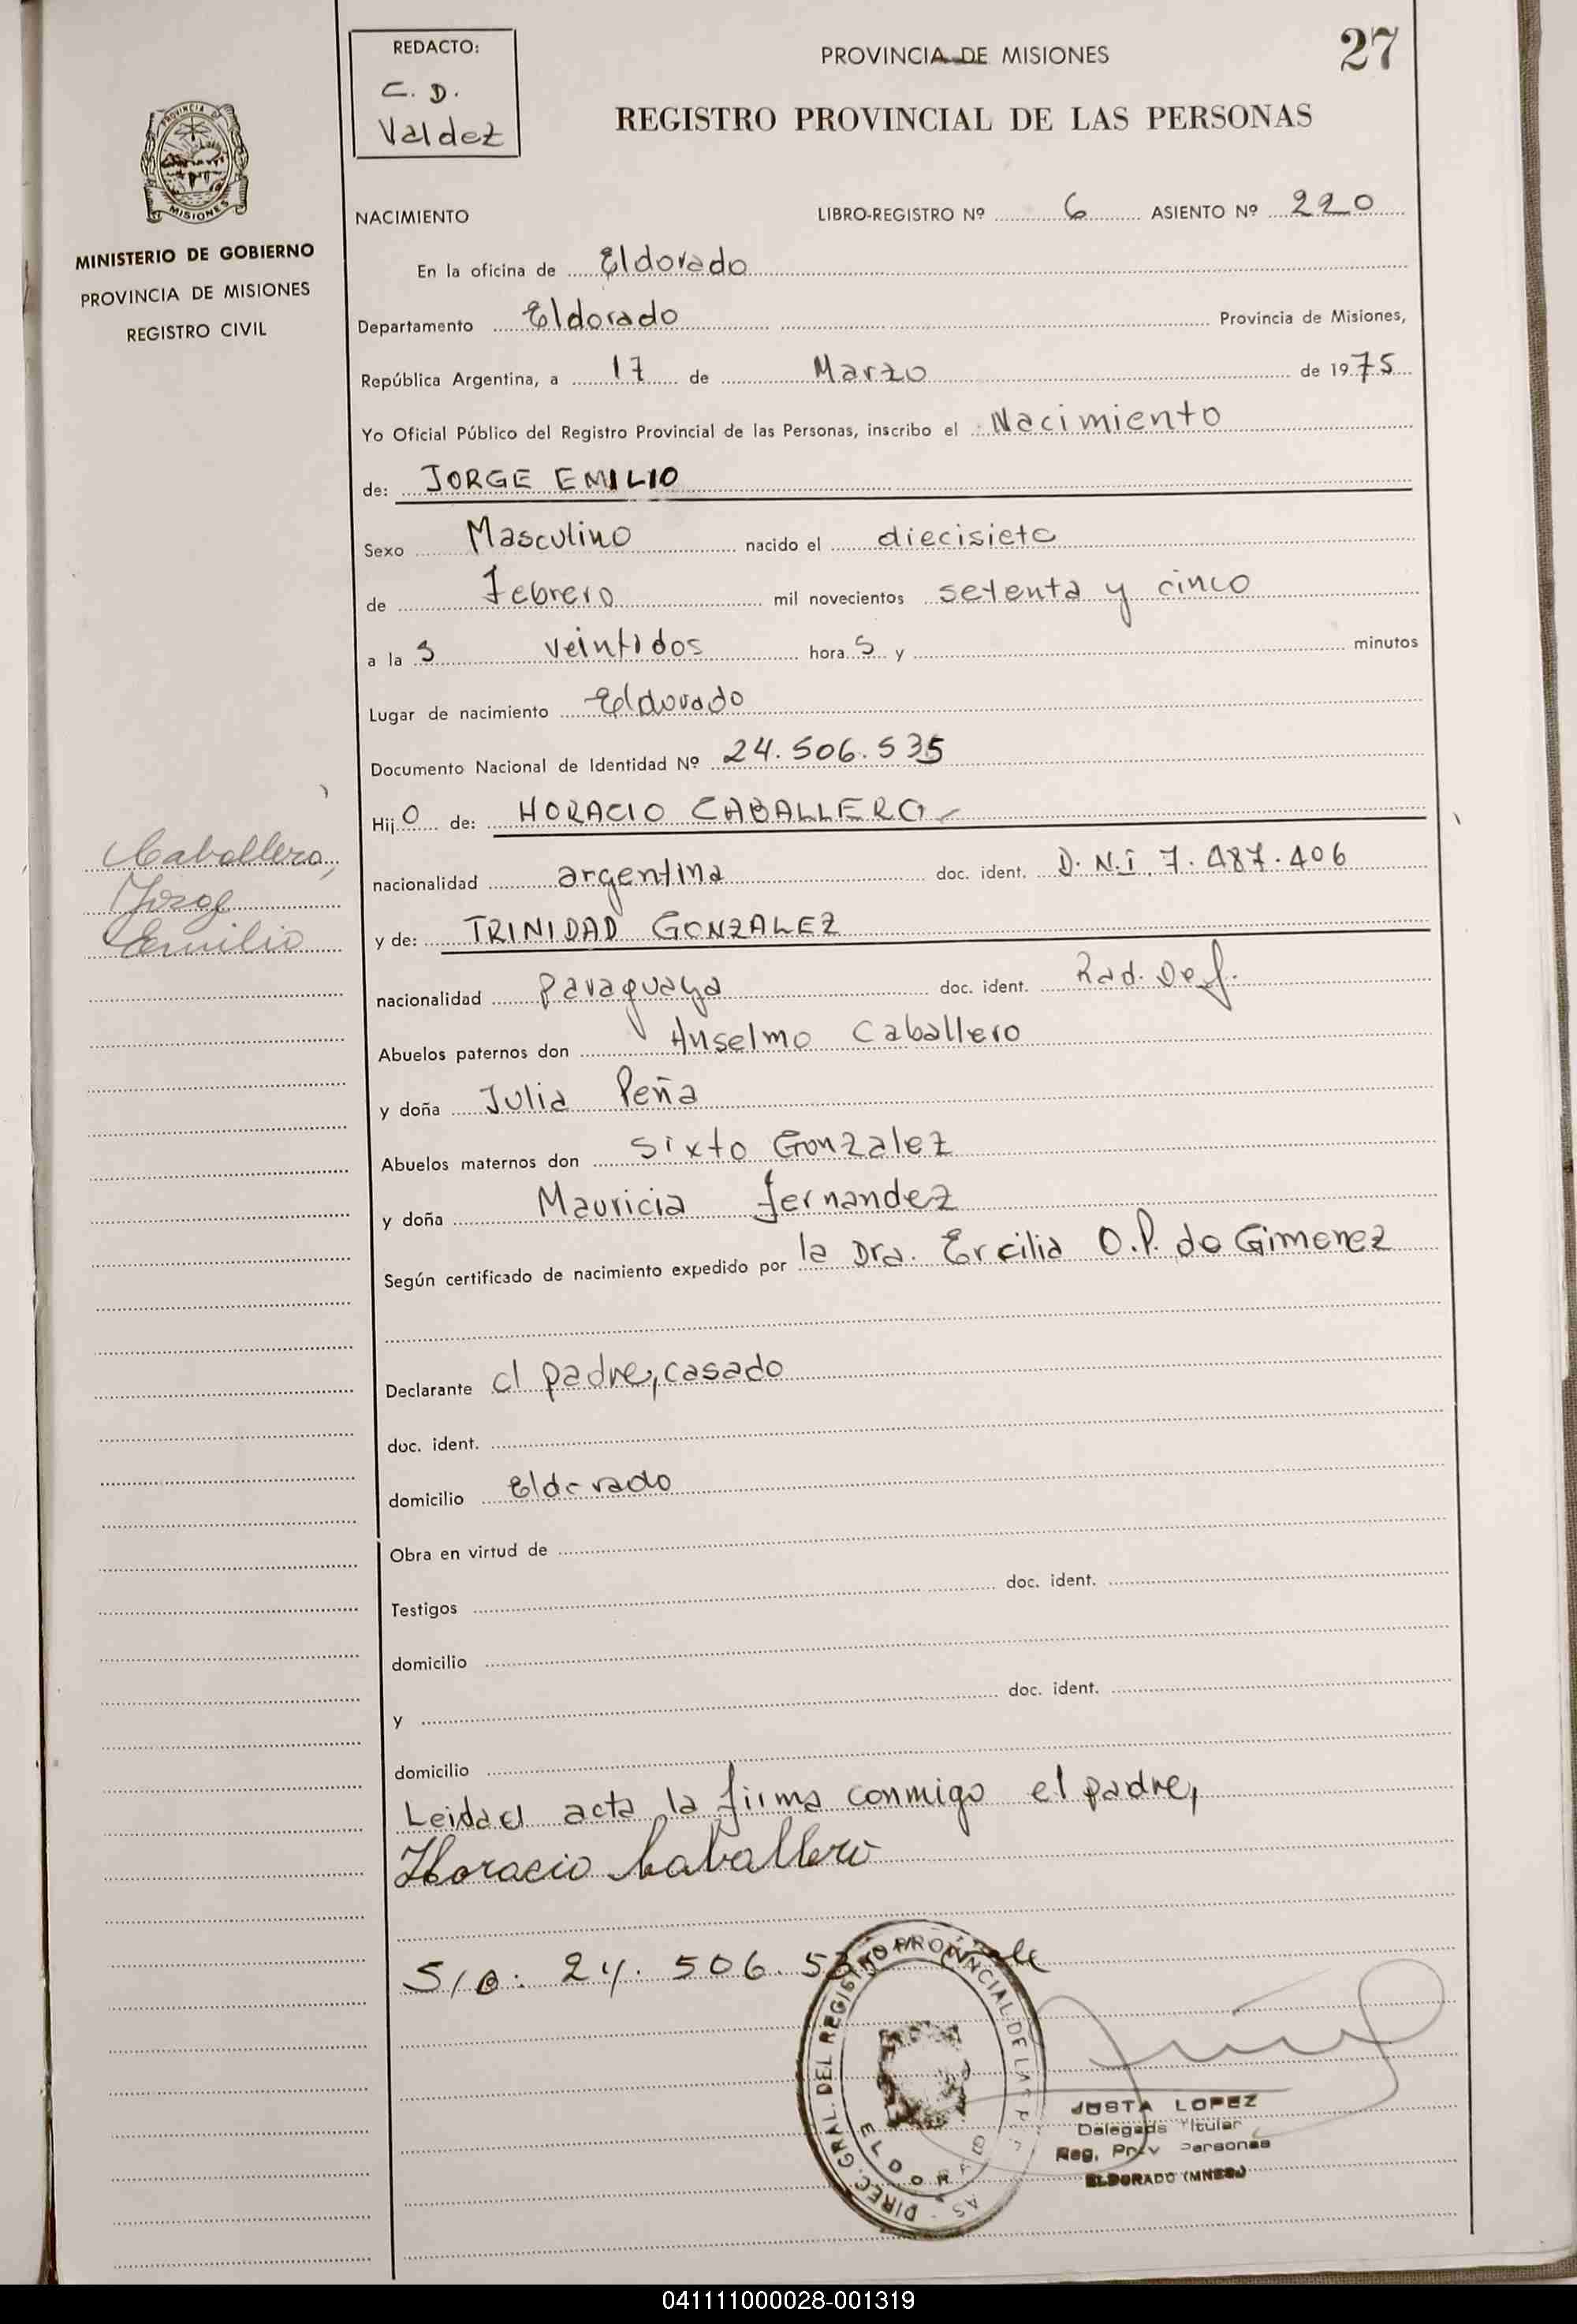 REDACTO:
C. D.
Valdez
PROVINCIA DE MISIONES
27
REGISTRO PROVINCIAL DE LAS PERSONAS
PROVINCIA DE
MISIONES
MINISTERIO DE GOBIERNO
PROVINCIA DE MISIONES
REGISTRO CIVIL
NACIMIENTO LIBRO-REGISTRO Nº 6 ASIENTO Nº 220
En la oficina de Eldorado
Departamento Eldorado Provincia de Misiones,
República Argentina, a 17 de Marzo de 1975
Yo Oficial Público del Registro Provincial de las Personas, inscribo el Nacimiento
de: JORGE EMILIO
Sexo Masculino nacido el diecisiete
de Febrero mil novecientos setenta y cinco
a la s veintidos hora s y minutos
Lugar de nacimiento Eldorado
Documento Nacional de Identidad Nº 24.506.535
Hij o de: HORACIO CABALLERO
Caballero,
Jorge
Emilio
nacionalidad argentina doc. ident. D.N.I. 7.487.406
y de: TRINIDAD GONZALEZ
nacionalidad Paraguaya doc. ident. Rad. Def.
Abuelos paternos don Anselmo Caballero
y doña Julia Peña
Abuelos maternos don Sixto Gonzalez
y doña Mauricia Fernandez
Según certificado de nacimiento expedido por la Dra. Ercilia O.P. de Gimenez
Declarante el padre, casado
doc. ident.
domicilio Eldorado
Obra en virtud de
Testigos doc. ident.
domicilio
y doc. ident.
domicilio
Leida el acta la firma conmigo el padre,
Horacio Caballero
S/B: 24. 506. 53
DIREC. GRAL. DEL REGISTRO PROVINCIAL DE LAS
JUSTA LOPEZ
Delegada Titular
Reg. Prov Personas
ELDORADO (MNES.)
041111000028-001319